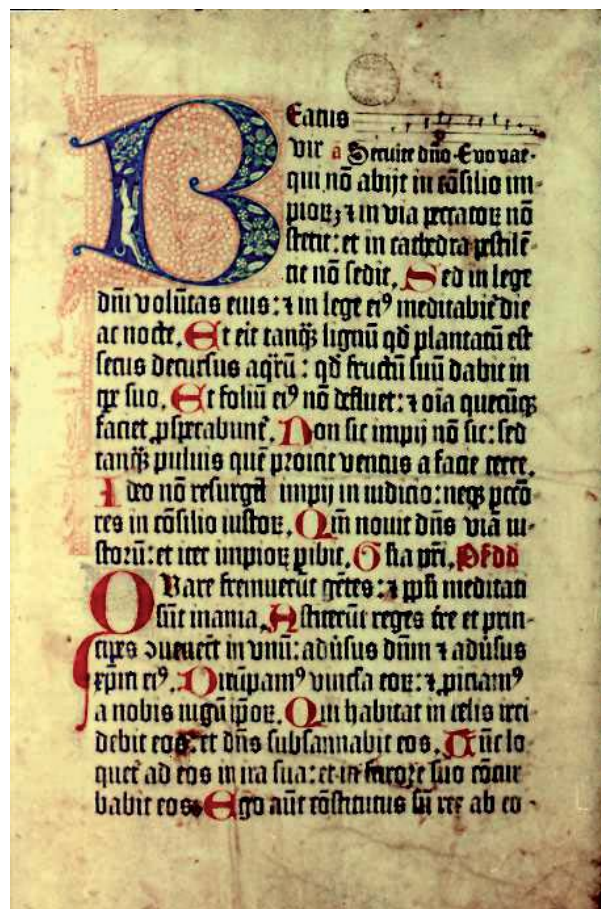 Beatus
vir a Seruite dño. Evovae.
qui nõ abijt in cõsilio im-
pioꝝ ⁊ in via peccatoꝝ nõ
stetit: et in cathedra pestilẽ-
tie nõ sedit. Sed in lege
dñi volũtas eius: ⁊ in lege eiꝰ meditabit̃ die
ac nocte. Et erit tanqᷓꝫ lignũ qḋ plantatũ est
secus decursus aqͣrũ: qḋ fructũ suũ dabit in
tꝑe suo. Et foliũ eiꝰ nõ defluet: ⁊ oĩa quecũqꝫ
faciet ꝓsꝑabunt̃. Non sic impij nõ sic: sed
tanqᷓꝫ puluis quẽ proicit ventus a facie terre.
Ideo nõ resurgẽt impij in iudicio: neqꝫ pctõ
res in cõsilio iustoꝝ. Qm̃ nouit dñs viã iu-
storũ: et iter impioꝝ ꝑibit. Gl̃ia pr̃i. Ps̃ dd
Quare fremuerũt gẽtes: ⁊ ppl̃i meditati
sũt inania. Astiterũt reges tr̃e et prin-
cipes ꝯuenert̃ in vnũ: adũsus dñm ⁊ adũsus
xp̃m eiꝰ. Dirũpamꝰ vincl̃a eoꝝ: ⁊ ꝓiciamꝰ
a nobis iugũ ip̃oꝝ. Qui habitat in celis irri
debit eos: et dñs subsannabit eos. Tũc lo
quet̃ ad eos in ira sua: et in furore suo cõtur
babit eos. Ego aũt cõstitutus sũ rex ab eo-